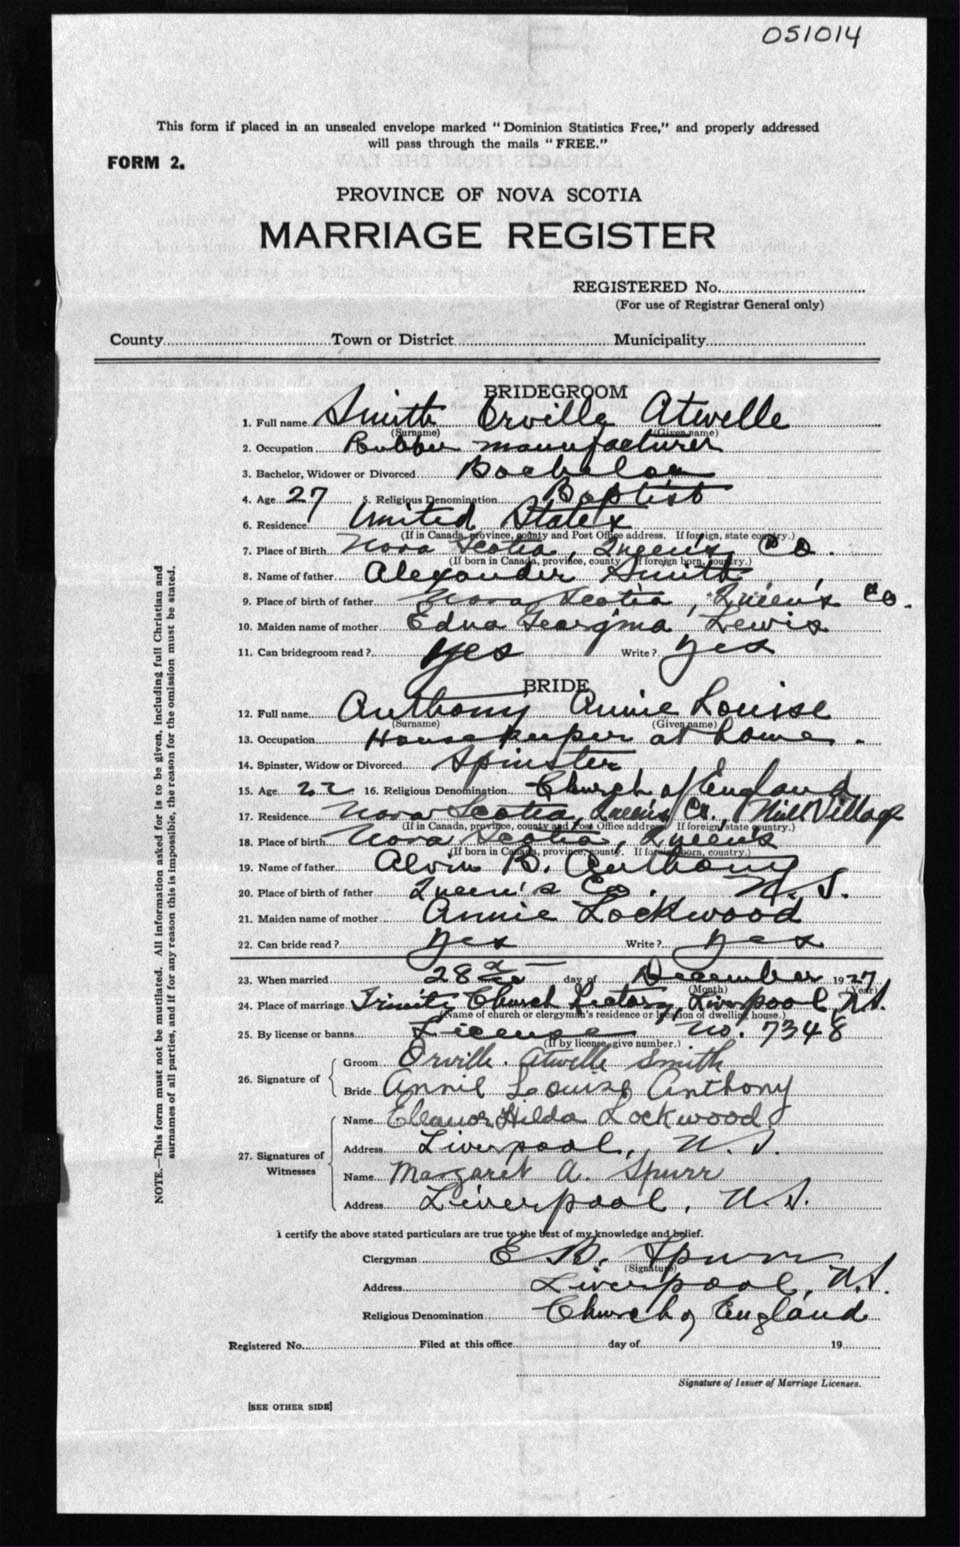 051014
This form if placed in an unsealed envelope marked "Dominion Statistics Free," and properly addressed
will pass through the mails "FREE."
FORM 2.
PROVINCE OF NOVA SCOTIA
MARRIAGE REGISTER
REGISTERED No.
(For use of Registrar General only)
County Town or District Municipality
BRIDEGROOM
1. Full name Smith Orville Atwelle
(Surname) (Given name)
2. Occupation Rubber manufacturer
3. Bachelor, Widower or Divorced Bachelor
4. Age 27 5. Religious Denomination Baptist
6. Residence United States
(If in Canada, province, county and Post Office address. If foreign, state country.)
7. Place of Birth Nova Scotia, Queen's Co.
(If born in Canada, province, county. If foreign born, country.)
8. Name of father Alexander Smith
9. Place of birth of father Nova Scotia, Queen's Co.
10. Maiden name of mother Edna Georgina Lewis
11. Can bridegroom read? yes Write? yes
BRIDE
12. Full name Anthony Annie Louise
(Surname) (Given name)
13. Occupation Housekeeper at home.
14. Spinster, Widow or Divorced Spinster
15. Age 22 16. Religious Denomination Church of England
17. Residence Nova Scotia, Queen's Co., Mill Village
(If in Canada, province, county and Post Office address. If foreign, state country.)
18. Place of birth Nova Scotia, Queen's
(If born in Canada, province, county. If foreign born, country.)
19. Name of father Alvin B. Anthony
20. Place of birth of father Queen's Co. N.S.
21. Maiden name of mother Annie Lockwood
22. Can bride read? yes Write? yes
23. When married 28th day of December 1927
(Month) (Year)
24. Place of marriage Trinity Church Rectory, Liverpool, N.S.
(Name of church or clergyman's residence or location of dwelling house.)
25. By license or banns License No. 7348
(If by license, give number.)
26. Signature of Groom Orville Atwelle Smith
Bride Annie Louise Anthony
27. Signatures of Witnesses Name Eleanor Hilda Lockwood
Address Liverpool, N.S.
Name Margaret A. Spurr
Address Liverpool, N.S.
I certify the above stated particulars are true to the best of my knowledge and belief.
Clergyman E B. Spurr
(Signature)
Address Liverpool, N.S.
Religious Denomination Church of England
Registered No. Filed at this office day of 19
Signature of Issuer of Marriage Licenses.
[SEE OTHER SIDE]
NOTE.—This form must not be mutilated. All information asked for is to be given, including full Christian and
surnames of all parties, and if for any reason this is impossible, the reason for the omission must be stated.